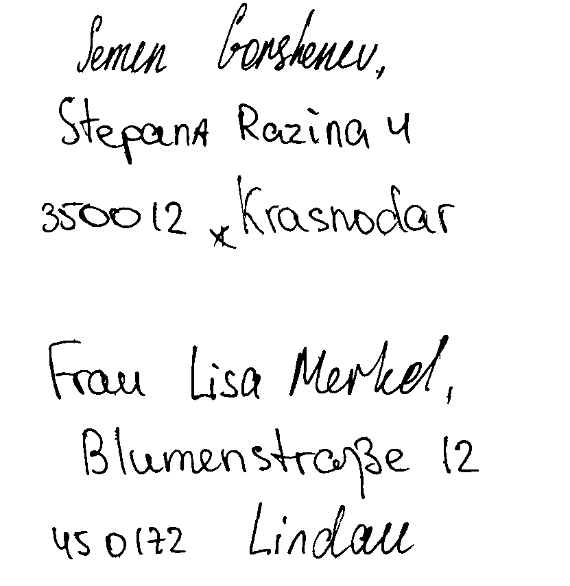 Semen Gorshenev,
Stepana Razina 4
350012 Krasnodar
Frau Lisa Merkel,
Blumenstraße 12
450172 Lindau